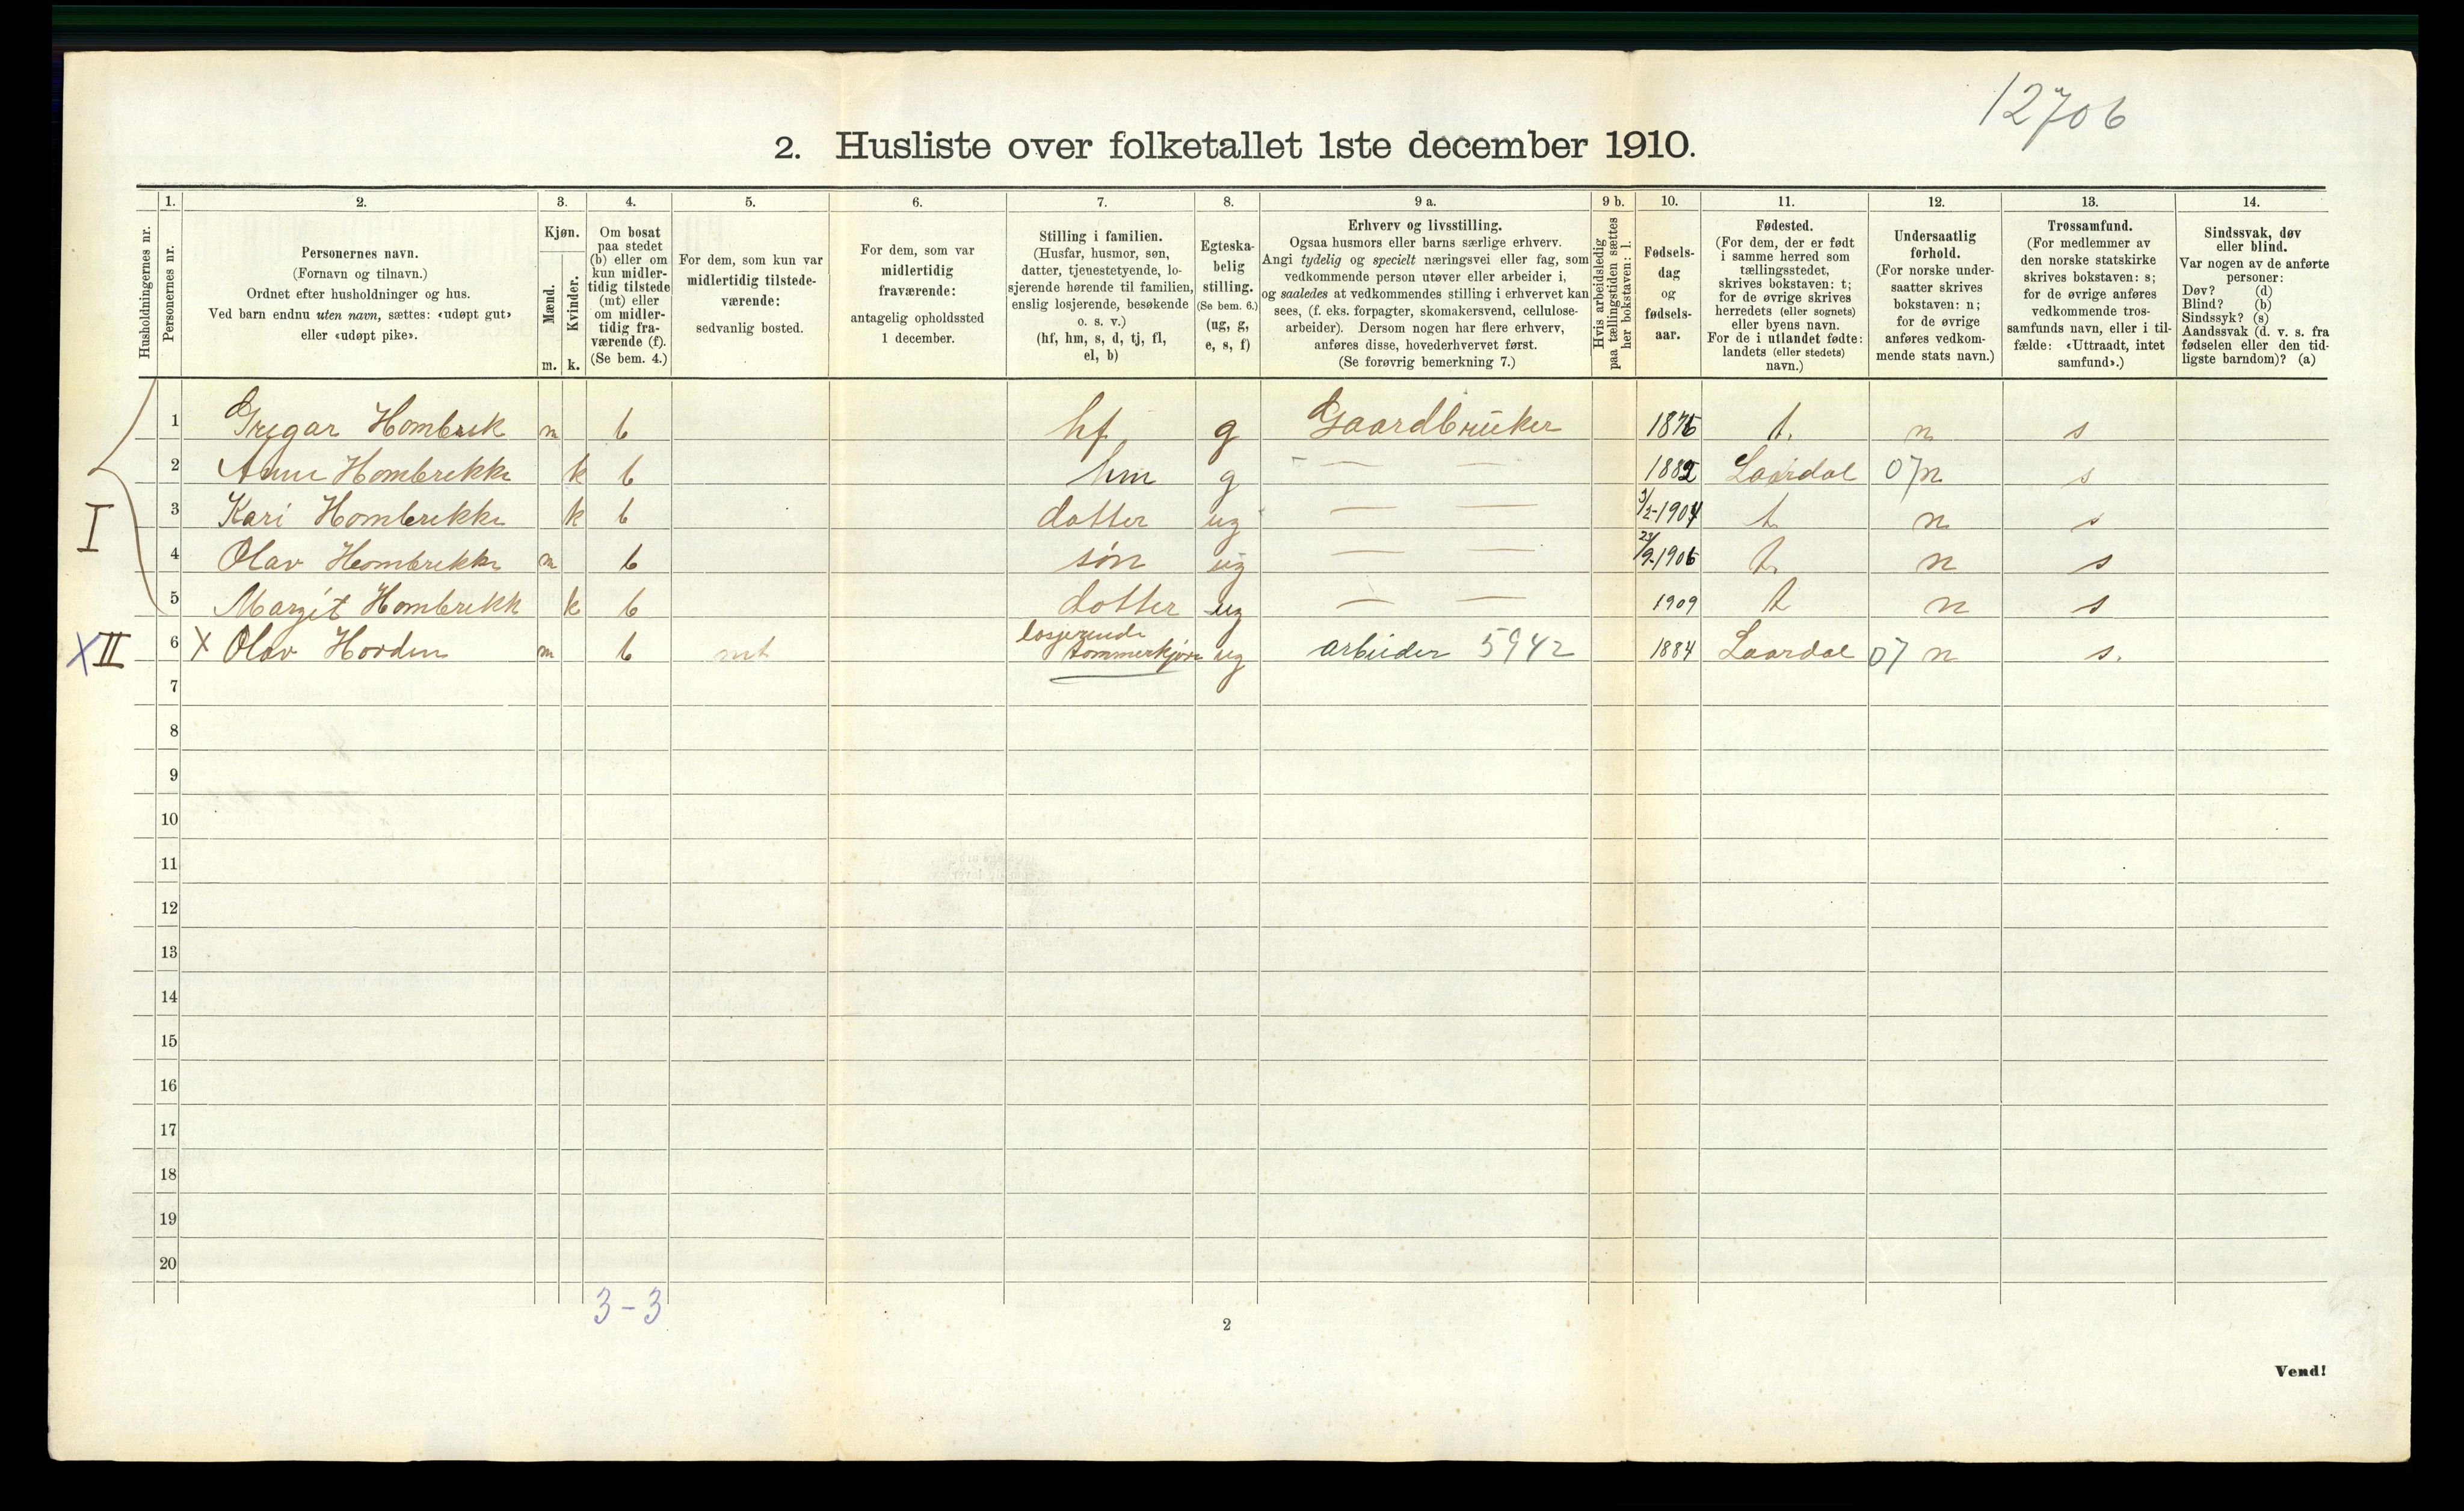 12706
2. Husliste over folketallet 1ste december 1910.
Husholdningernes nr.
1. Personernes nr.
2. Personernes navn.
(Fornavn og tilnavn.)
Ordnet efter husholdninger og hus.
Ved barn endnu uten navn, sættes: «udøpt gut»
eller «udøpt pike».
3. Kjøn.
Mænd. Kvinder.
m. k.
4. Om bosat
paa stedet
(b) eller om
kun midler-
tidig tilstede
(mt) eller
om midler-
tidig fra-
værende (f).
(Se bem. 4.)
5. For dem, som kun var
midlertidig tilstede-
værende:
sedvanlig bosted.
6. For dem, som var
midlertidig
fraværende:
antagelig opholdssted
1 december.
7. Stilling i familien.
(Husfar, husmor, søn,
datter, tjenestetyende, lo-
sjerende hørende til familien,
enslig losjerende, besøkende
o. s. v.)
(hf, hm, s, d, tj, fl,
el, b)
8. Egteska-
belig
stilling.
(Se bem. 6.)
(ug, g,
e, s, f)
9 a. Erhverv og livsstilling.
Ogsaa husmors eller barns særlige erhverv.
Angi tydelig og specielt næringsvei eller fag, som
vedkommende person utøver eller arbeider i,
og saaledes at vedkommendes stilling i erhvervet kan
sees, (f. eks. forpagter, skomakersvend, cellulose-
arbeider). Dersom nogen har flere erhverv,
anføres disse, hovederhvervet først.
(Se forøvrig bemerkning 7.)
9 b. Hvis arbeidsledig
paa tællingstiden sættes
her bokstaven: l.
10. Fødsels-
dag
og
fødsels-
aar.
11. Fødested.
(For dem, der er født
i samme herred som
tællingsstedet,
skrives bokstaven: t;
for de øvrige skrives
herredets (eller sognets)
eller byens navn.
For de i utlandet fødte:
landets (eller stedets)
navn.)
12. Undersaatlig
forhold.
(For norske under-
saatter skrives
bokstaven: n;
for de øvrige
anføres vedkom-
mende stats navn.)
13. Trossamfund.
(For medlemmer av
den norske statskirke
skrives bokstaven: s;
for de øvrige anføres
vedkommende tros-
samfunds navn, eller i til-
fælde: «Uttraadt, intet
samfund».)
14. Sindssvak, døv
eller blind.
Var nogen av de anførte
personer:
Døv? (d)
Blind? (b)
Sindssyk? (s)
Aandssvak (d. v. s. fra
fødselen eller den tid-
ligste barndom)? (a)
1 Gregar Hombrek m b hf g Gaardbruker 1876 t. n s
2 Anne Hombrekke k b hm g — — 1882 Laardal 07 n s
I 3 Kari Hombrekke k b dotter ug — — 3/2-1904 t. n s
4 Olav Hombrekke m b søn ug — — 23/9-1906 t. n s
5 Margit Hombrekk k b dotter ug — — 1909 t n s
X II 6 X Olav Horden m b mt losjerende tømmerkjører ug arbeider 5942 1884 Laardal 07 n s.
7
8
9
10
11
12
13
14
15
16
17
18
19
20
3-3
2
Vend!